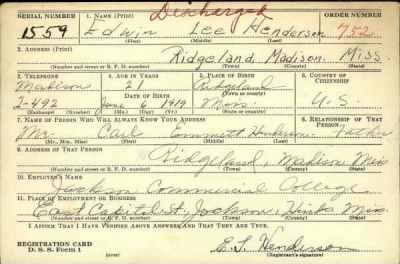 Discharged
SERIAL NUMBER 1. NAME (Print) ORDER NUMBER
1559 Edwin Lee Henderson 752
(First) (Middle) (Last)
2. ADDRESS (Print)
Ridgeland, Madison. Miss.
(Number and street or R. F. D. number) (Town) (County) (State)
3. TELEPHONE 4. AGE IN YEARS 5. PLACE OF BIRTH 6. COUNTRY OF CITIZENSHIP
Madison 21 Ridgeland
DATE OF BIRTH (Town or county)
2-492 June 6 1919 Miss. U. S.
(Exchange) (Number) (Mo.) (Day) (Yr.) (State or country)
7. NAME OF PERSON WHO WILL ALWAYS KNOW YOUR ADDRESS 8. RELATIONSHIP OF THAT PERSON
Mr. Carl Emmett Henderson Father
(Mr., Mrs., Miss) (First) (Middle) (Last)
9. ADDRESS OF THAT PERSON
Ridgeland, Madison Miss
(Number and street or R. F. D. number) (Town) (County) (State)
10. EMPLOYER'S NAME
Jackson Commercial College
11. PLACE OF EMPLOYMENT OR BUSINESS
East Capitol St, Jackson, Hinds Miss.
(Number and street or R. F. D. number) (Town) (County) (State)
I AFFIRM THAT I HAVE VERIFIED ABOVE ANSWERS AND THAT THEY ARE TRUE.
REGISTRATION CARD
D. S. S. Form 1
E. L. Henderson
(Registrant's signature)